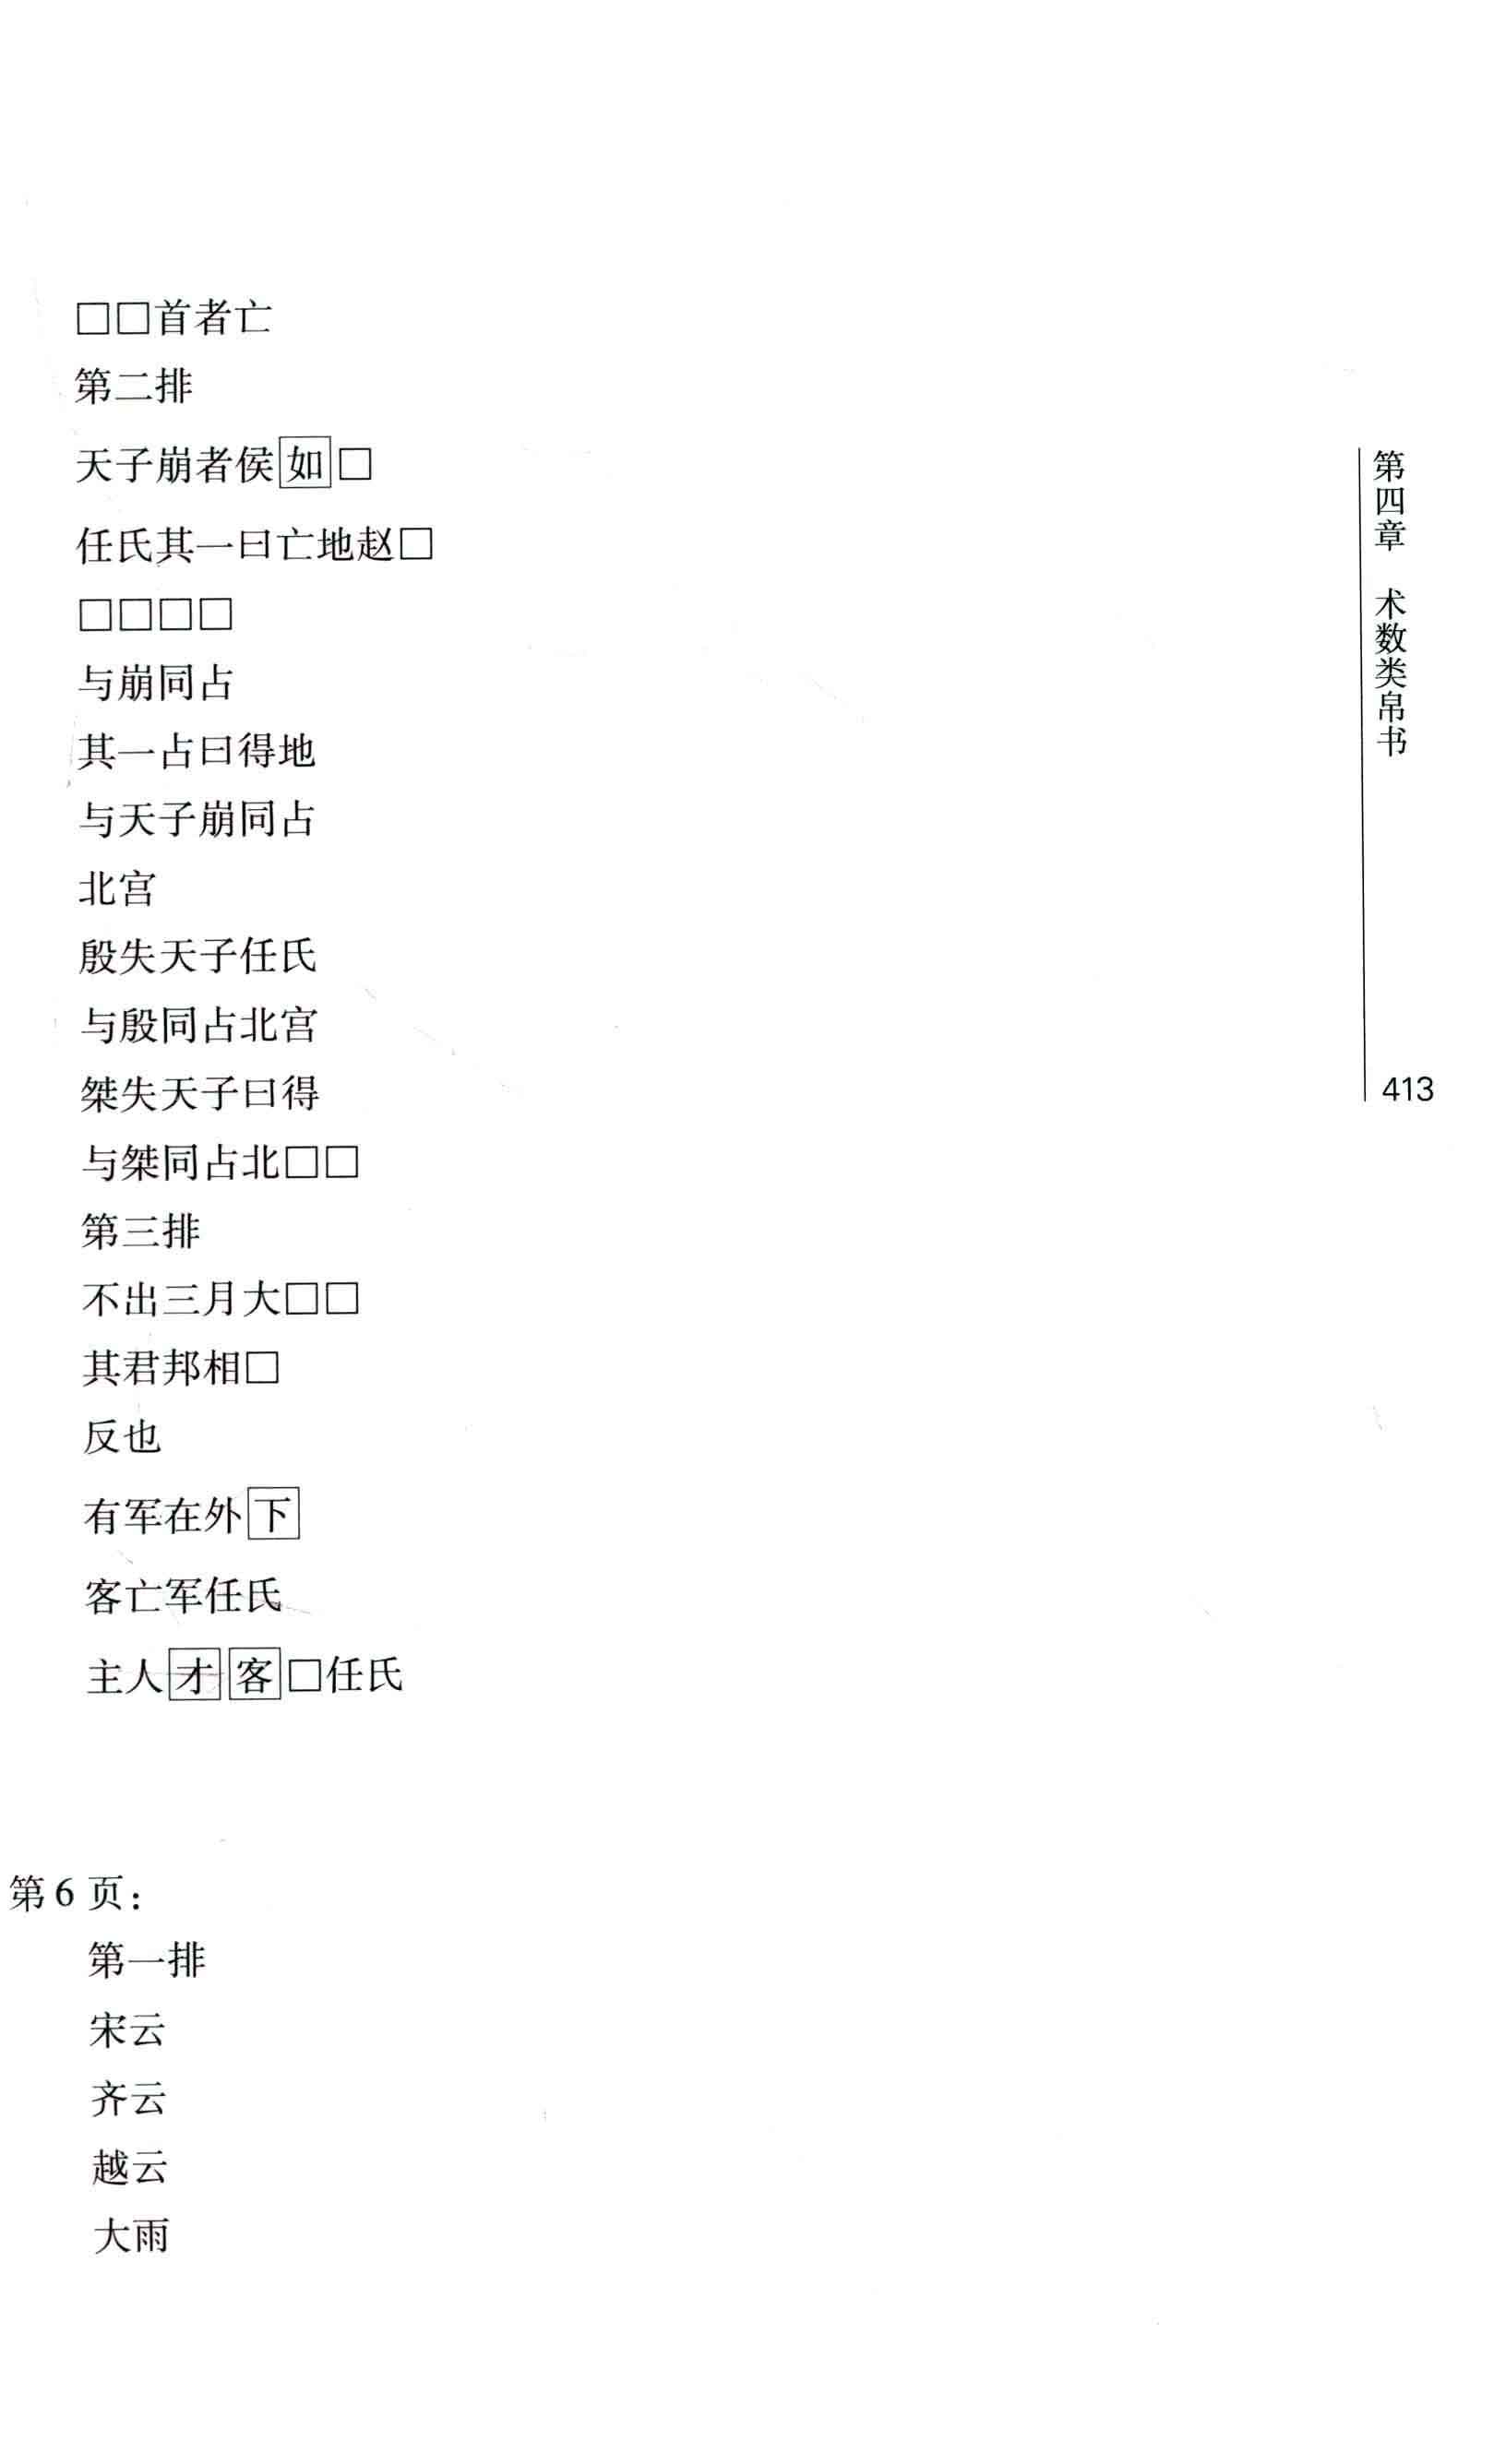 □□首者亡
第二排
天子崩者侯如□
任氏其一曰亡地赵□
□□□□
与崩同占
其一占曰得地
与天子崩同占
北宫
殷失天子任氏
与殷同占北宫
桀失天子曰得
与桀同占北□□
第三排
不出三月大□□
其君邦相□
反也
有军在外下
客亡军任氏
主人才客□任氏
第6页：
第一排
宋云
齐云
越云
大雨
第四章 术数类帛书
413